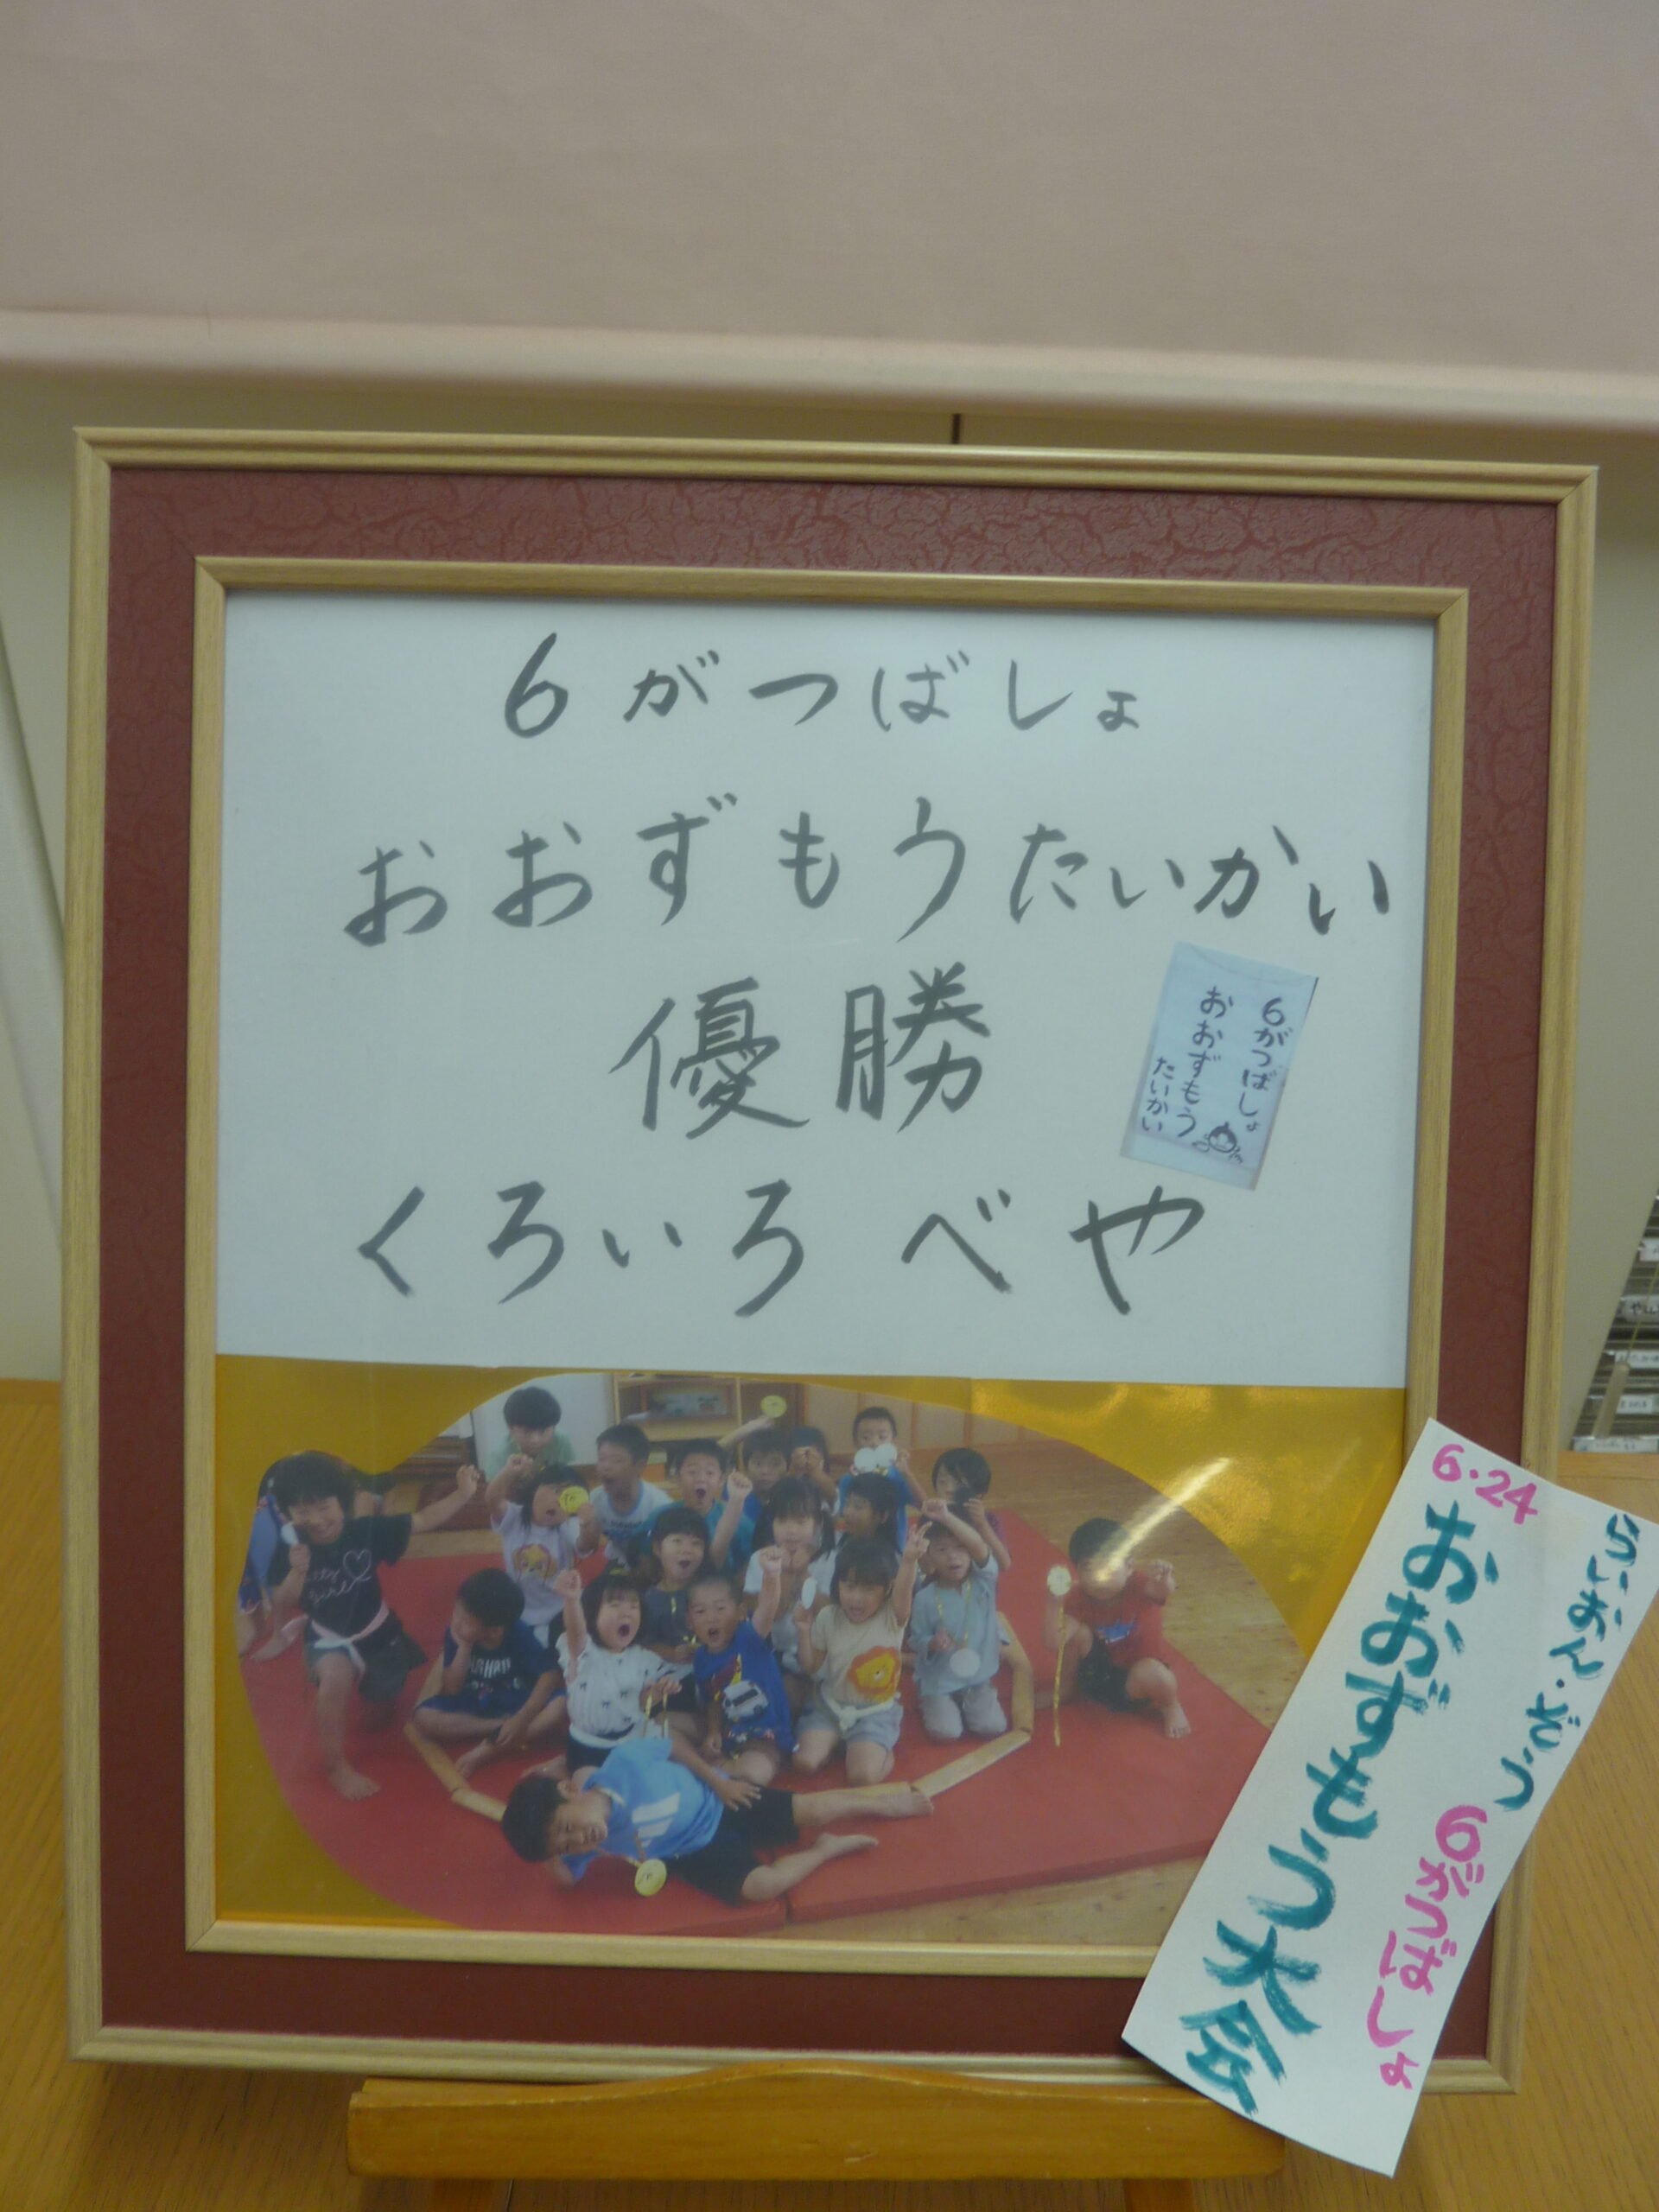 6がつばしょ
おおずもうたいかい
優勝
くろいろべや
6がつばしょ
おおずもう
たいかい
らいおん・ぞう
6がつばしょ
6・24
おおずもう大会